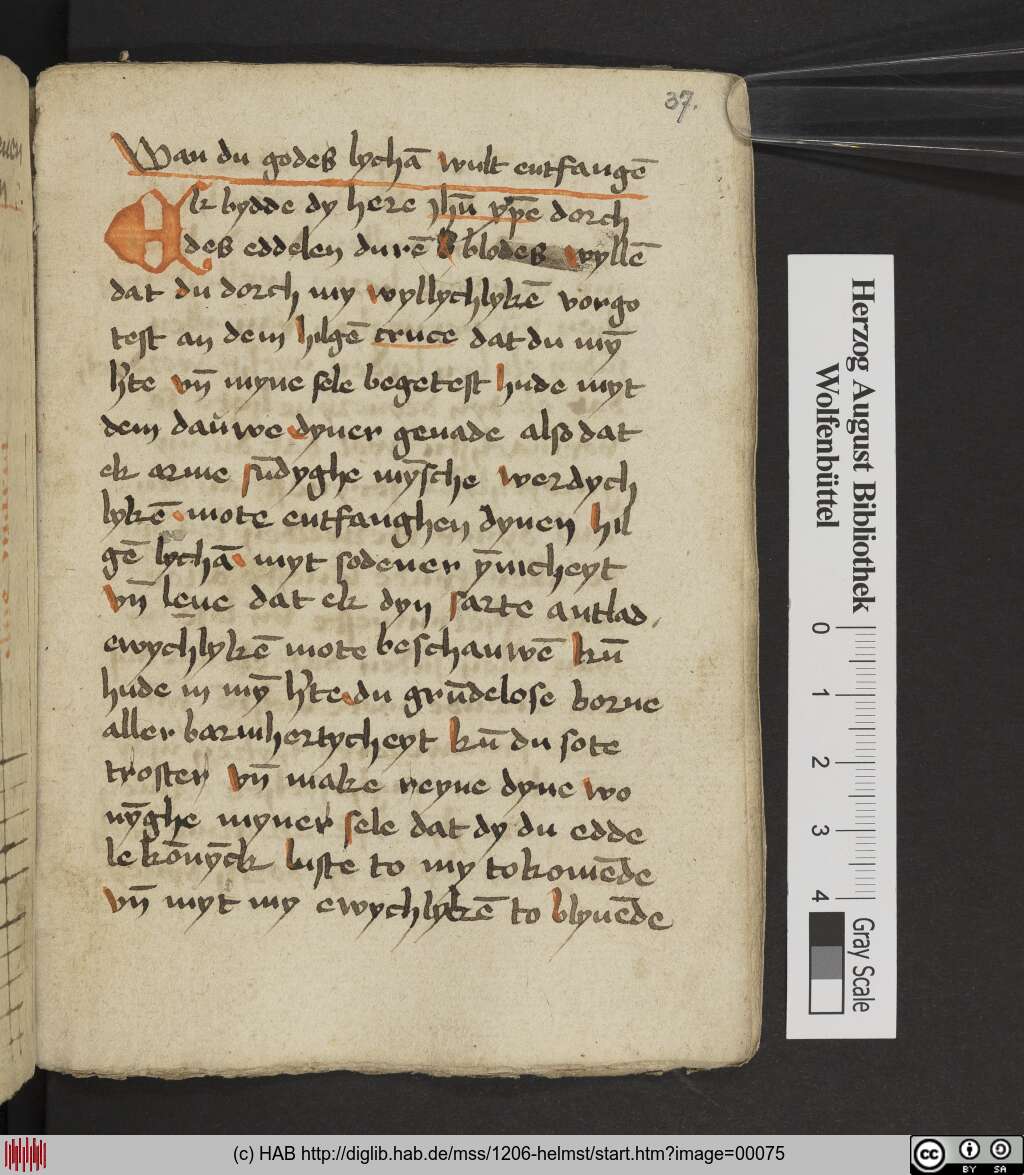 37.
Wan du godes lychā wult entfangē
Ek bydde dy here Jhū xp̄e dorch
des eddelen durē blodes wyllē
dat du dorch my wyllychlykē vorgo
test an dem hilgē cruce dat du mȳ
h'te vn̄ myne sele begetest hude myt
dem daůwe dyner genade also dat
ek arme sūdyghe mȳsche werdych
lykē mote entfanghen dynen hil
gē lychā myt sodener ȳnicheyt
vn̄ leue dat ek dyn sarte antlad
ewychlykē mote beschauwē kū
hude in mȳ h'te du grūdelose borne
aller barmhertycheyt kū du sote
troster vn̄ make reyne dyne wo
nȳghe myner sele dat dy du edde
le kōnȳck luste to my tokomēde
vn̄ myt my ewychlykē to blyuēde
Herzog August Bibliothek
Wolfenbüttel
0 1 2 3 4
Gray Scale
(c) HAB http://diglib.hab.de/mss/1206-helmst/start.htm?image=00075
cc BY SA